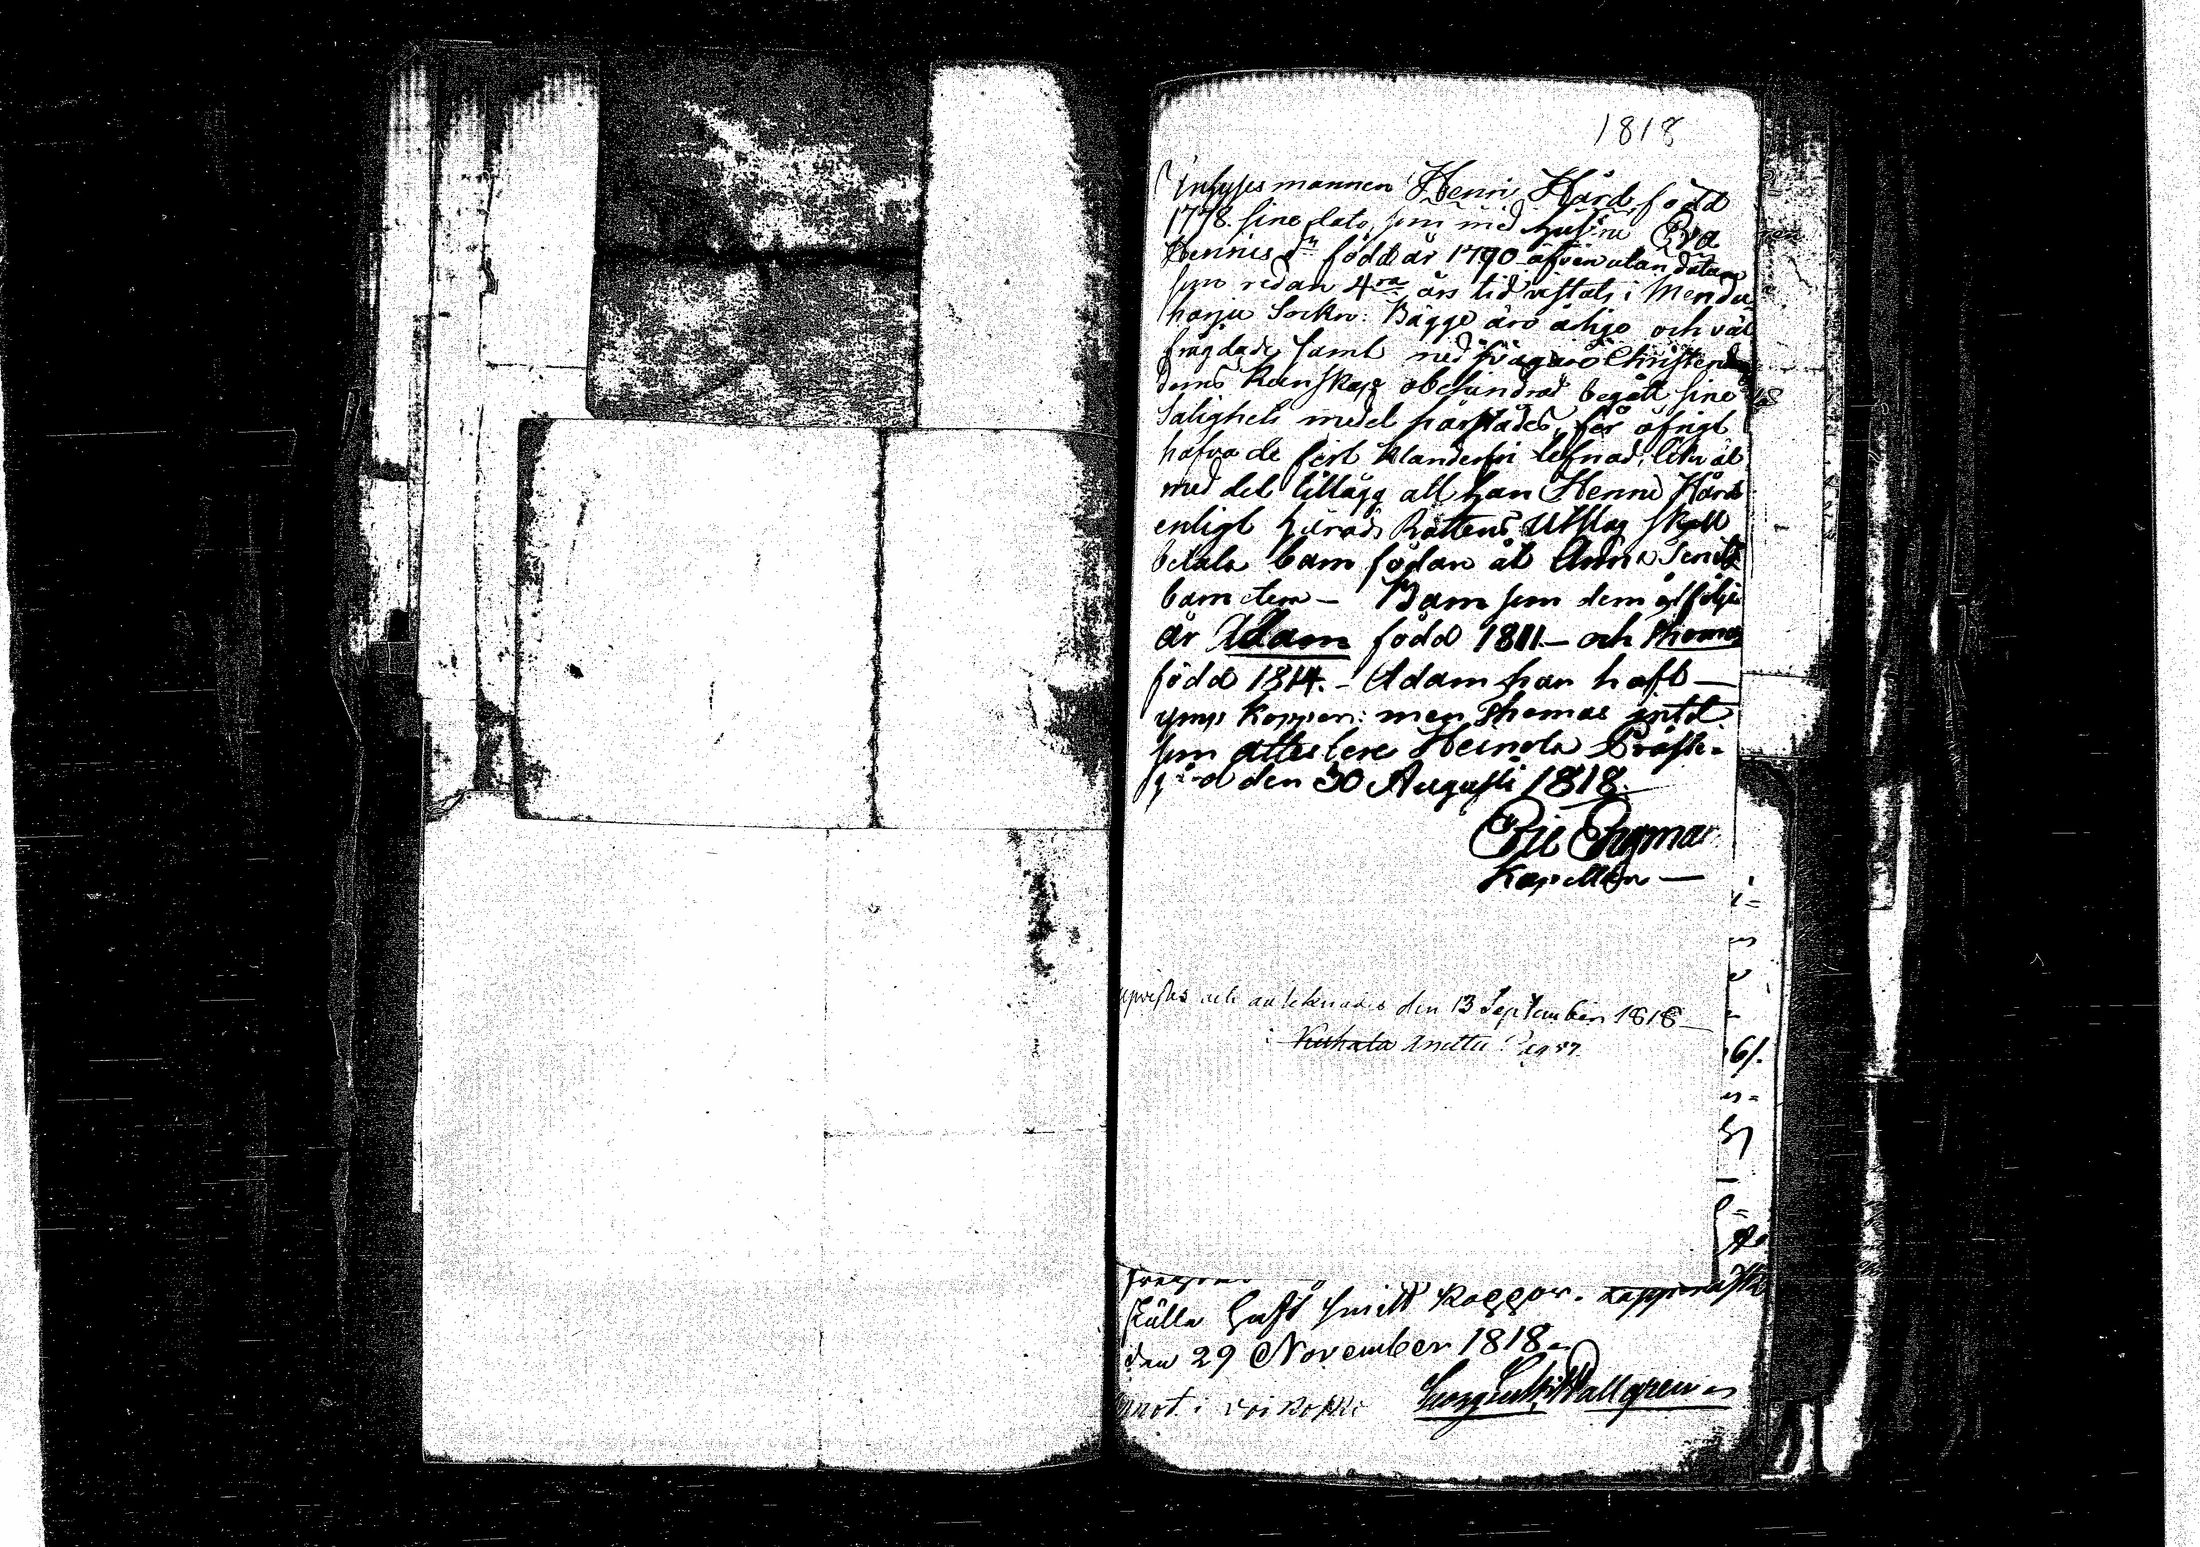 1818
Inhysesmannen Henric Hård, född
1778. sine dato, som med hustru Eva
Hennis dr. född år 1790 äfven utan datum
som redan 4ra års tid vistats i Mendu
harju Sockn: Bägge äro ärlige och väl
frägdade, samt med svagare Christen
doms kunskap obehindrad begått sine
Salighets medel härstädes, för öfrigt
hafva de fört klanderfri lefnad, likväl
med det tillägg att han Henric Hård
enligt Härads Rättens Utslag skall
betala barn födan åt Anna
barnetem — Barn som dem åtfölja
är Adam född 1811 — och Thomas
född 1814. — Adam har haft —
ymp koppor: men Thomas intet
som attestere Heinola Präst-
gård den 30 Augusti 1818.
Eric
Kapellan —
upvistes och antecknades den 13 September 1818 —
i Kuhala Anttu Pag 57
ställe haft smitt koppor.
den 29 November 1818.
annot. i Voikoski Georg Wallgren